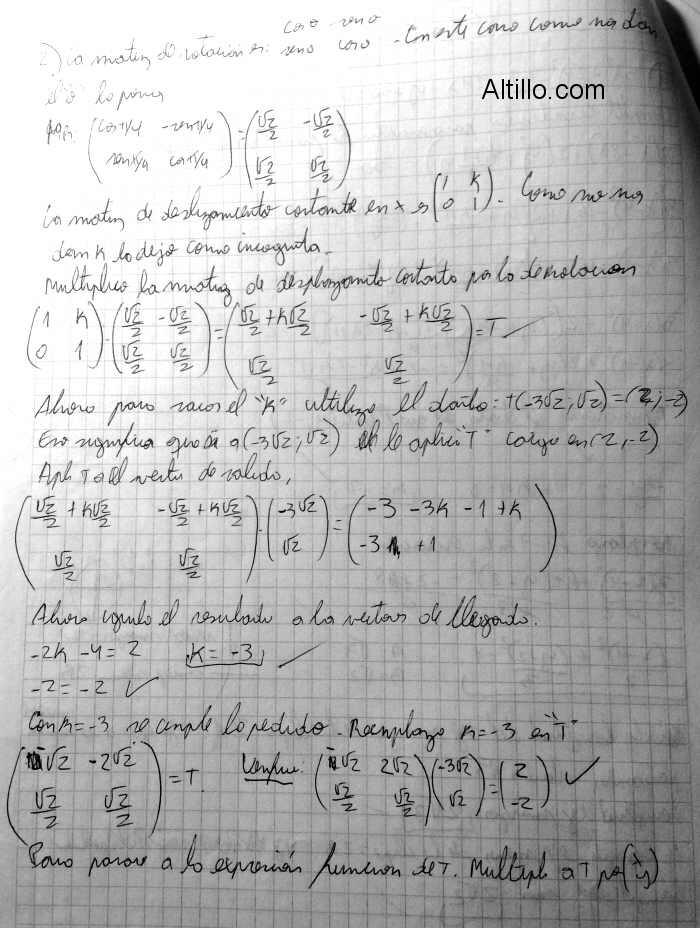 cosθ senθ
2) La matriz de rotación es: senθ cosθ - En este caso como nos dan
el θ lo pongo
Altillo.com
(cos π/4 -sen π/4) = (√2/2 -√2/2)
(sen π/4 cos π/4) (√2/2 √2/2)
La matriz de deslizamiento cortante en x es (1 K). Como no nos
(0 1)
dan K lo dejo como incognita.
Multiplico la matriz de desplazamiento cortante por la de rotacion
(1 K) . (√2/2 -√2/2) = (√2/2 + K√2/2 -√2/2 + K√2/2) = T ✓
(0 1) (√2/2 √2/2) (√2/2 √2/2)
Ahora para sacar el "K" utilizo el dato: T(-3√2; √2) = (2; -2)
Eso significa que si a (-3√2; √2) le aplico "T" caigo en (2, -2)
Aplico T al vector de salida,
(√2/2 + K√2/2 -√2/2 + K√2/2) . (-3√2) = (-3 -3K -1 +K)
(√2/2 √2/2) (√2) (-3 +1)
Ahora igualo el resultado a la vector de llegada.
-2K -4 = 2 K = -3 ✓
-2 = -2 ✓
Con K=-3 se cumple lo pedido. Reemplazo K=-3 en "T"
(-√2 -2√2) = T. Verifico: (-√2 2√2) (-3√2) = (2) ✓
(√2/2 √2/2) (√2/2 √2/2) (√2) (-2)
Para pasar a la expresión funcion de T. Multiplico a T por (x)
(y)